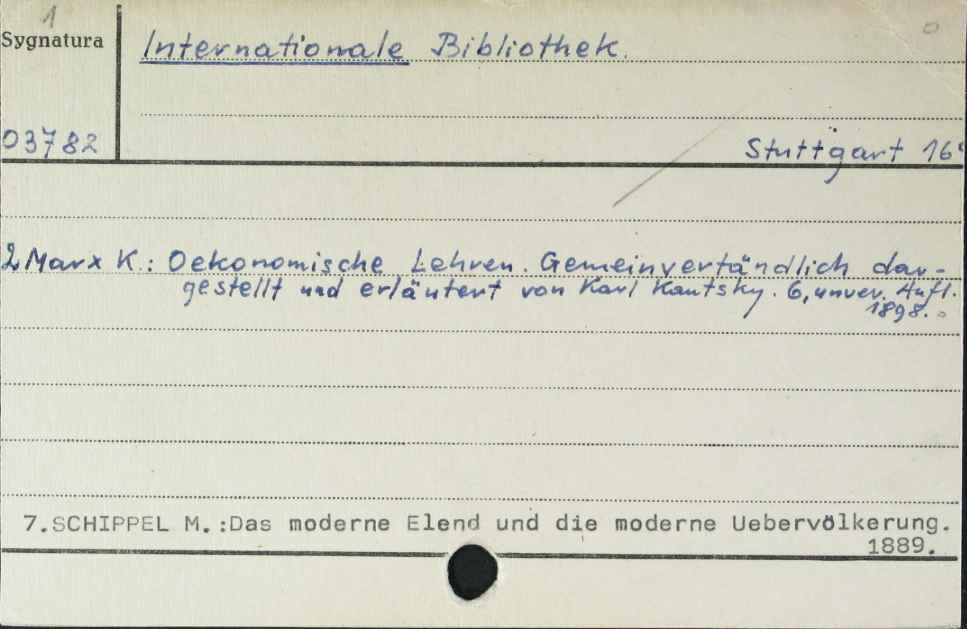 1
Sygnatura
Internationale Bibliothek.
03782
Stuttgart 16°
2 Marx K.: Oekonomische Lehren. Gemeinvertändlich dar-
gestellt und erläutert von Karl Kautsky. 6, unver. Aufl.
1898.
7.SCHIPPEL M.:Das moderne Elend und die moderne Uebervölkerung.
1889.